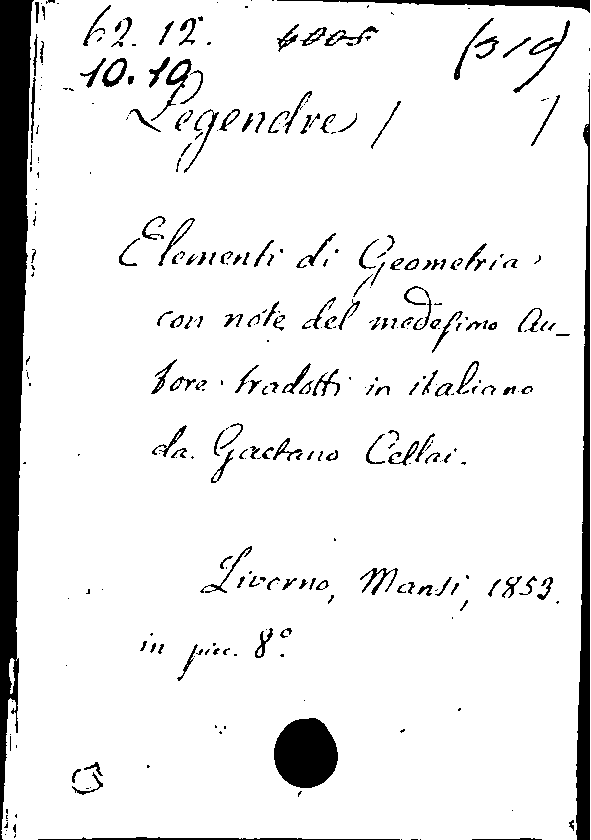 62. 12. 6005 (319)
10. 10
Legendre / 1
Elementi di Geometria
con note del medesimo Au-
tore tradotti in italiano
da Gaetano Cellai.
Livorno, Mansi, 1853.
in picc. 8º.